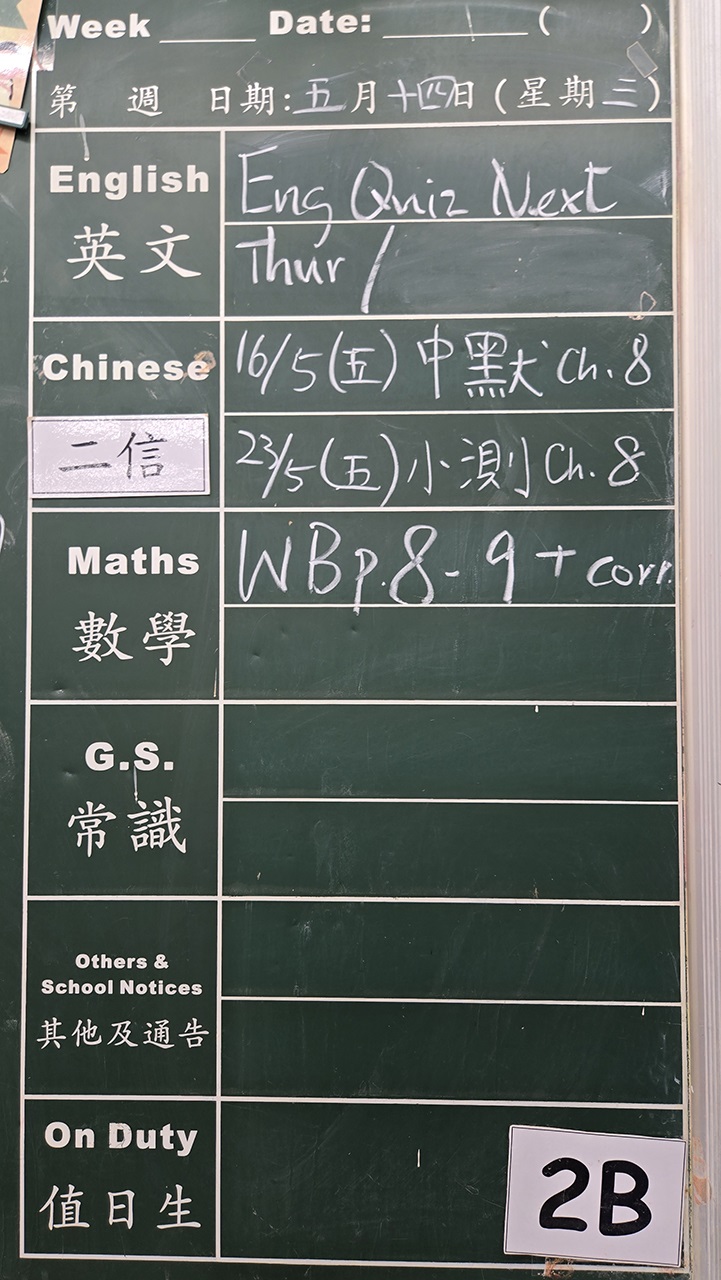 Week _____ Date: __________ (     )
第 週 日期:五月十四日(星期三)
English
英文
Eng Quiz Next
Thur/
Chinese
二信
16/5(五)中默 Ch. 8
23/5(五)小測 Ch. 8
Maths
數學
WB p.8-9 + corr.
G.S.
常識
Others &
School Notices
其他及通告
On Duty
值日生
2B